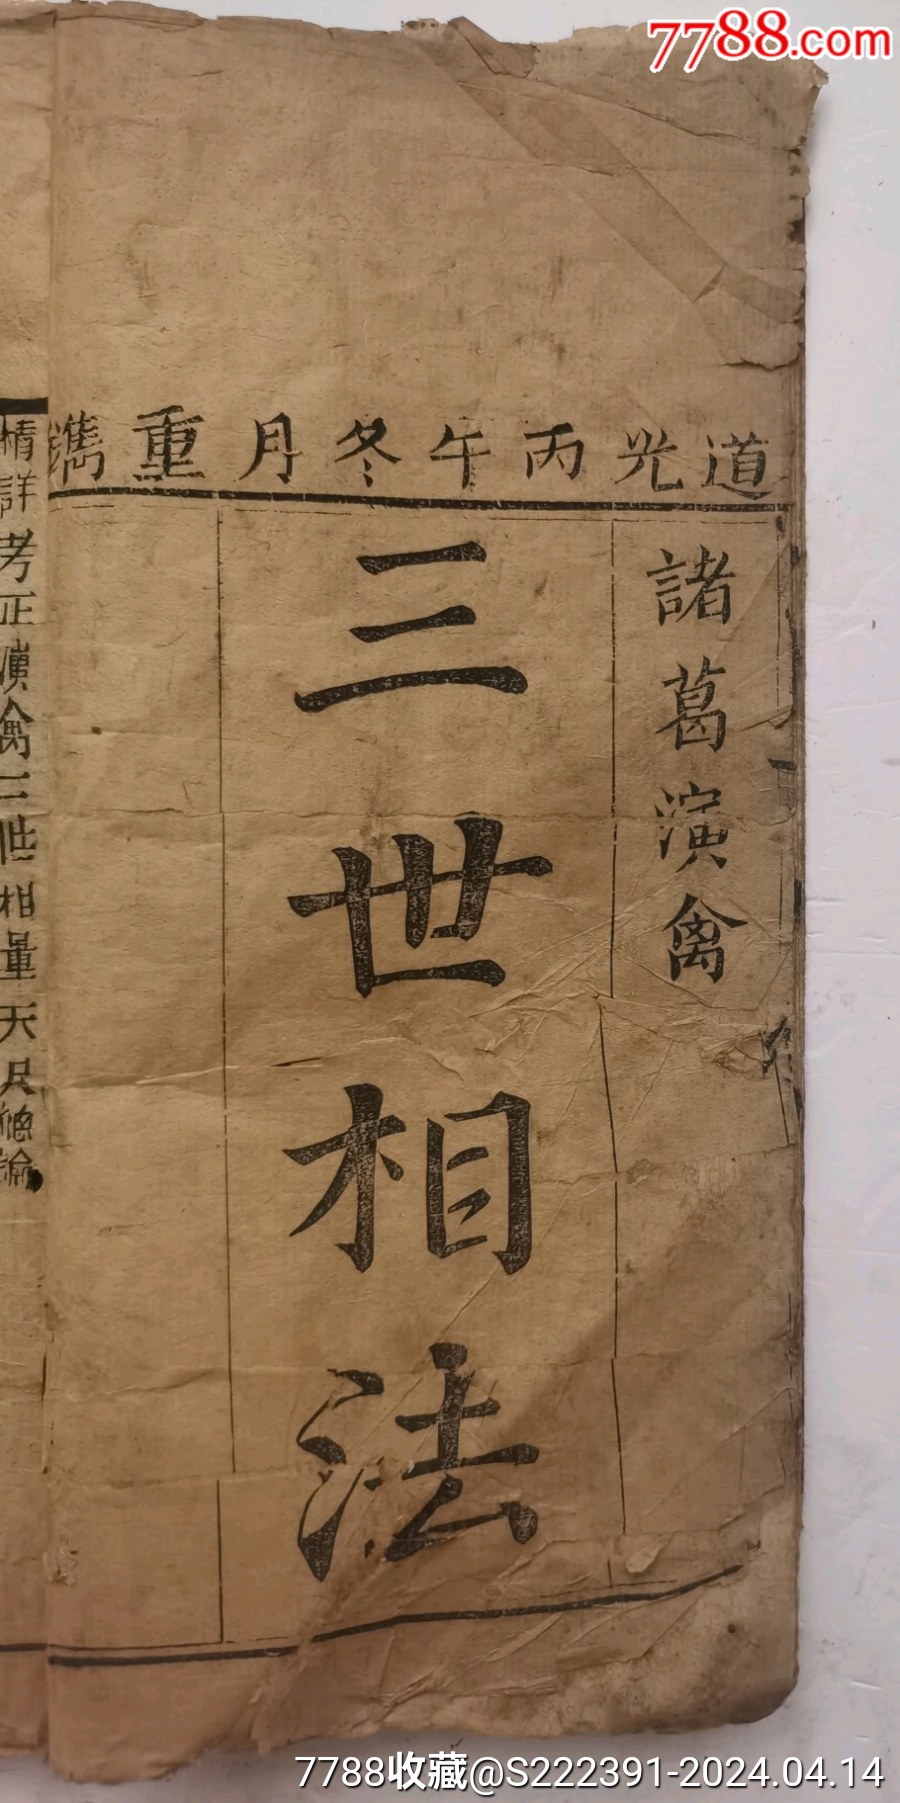 7788.com
道光丙午冬月重鐫
諸葛演禽
三世相法
精詳考正演禽三世相量天尺總論
7788收藏@S222391-2024.04.14